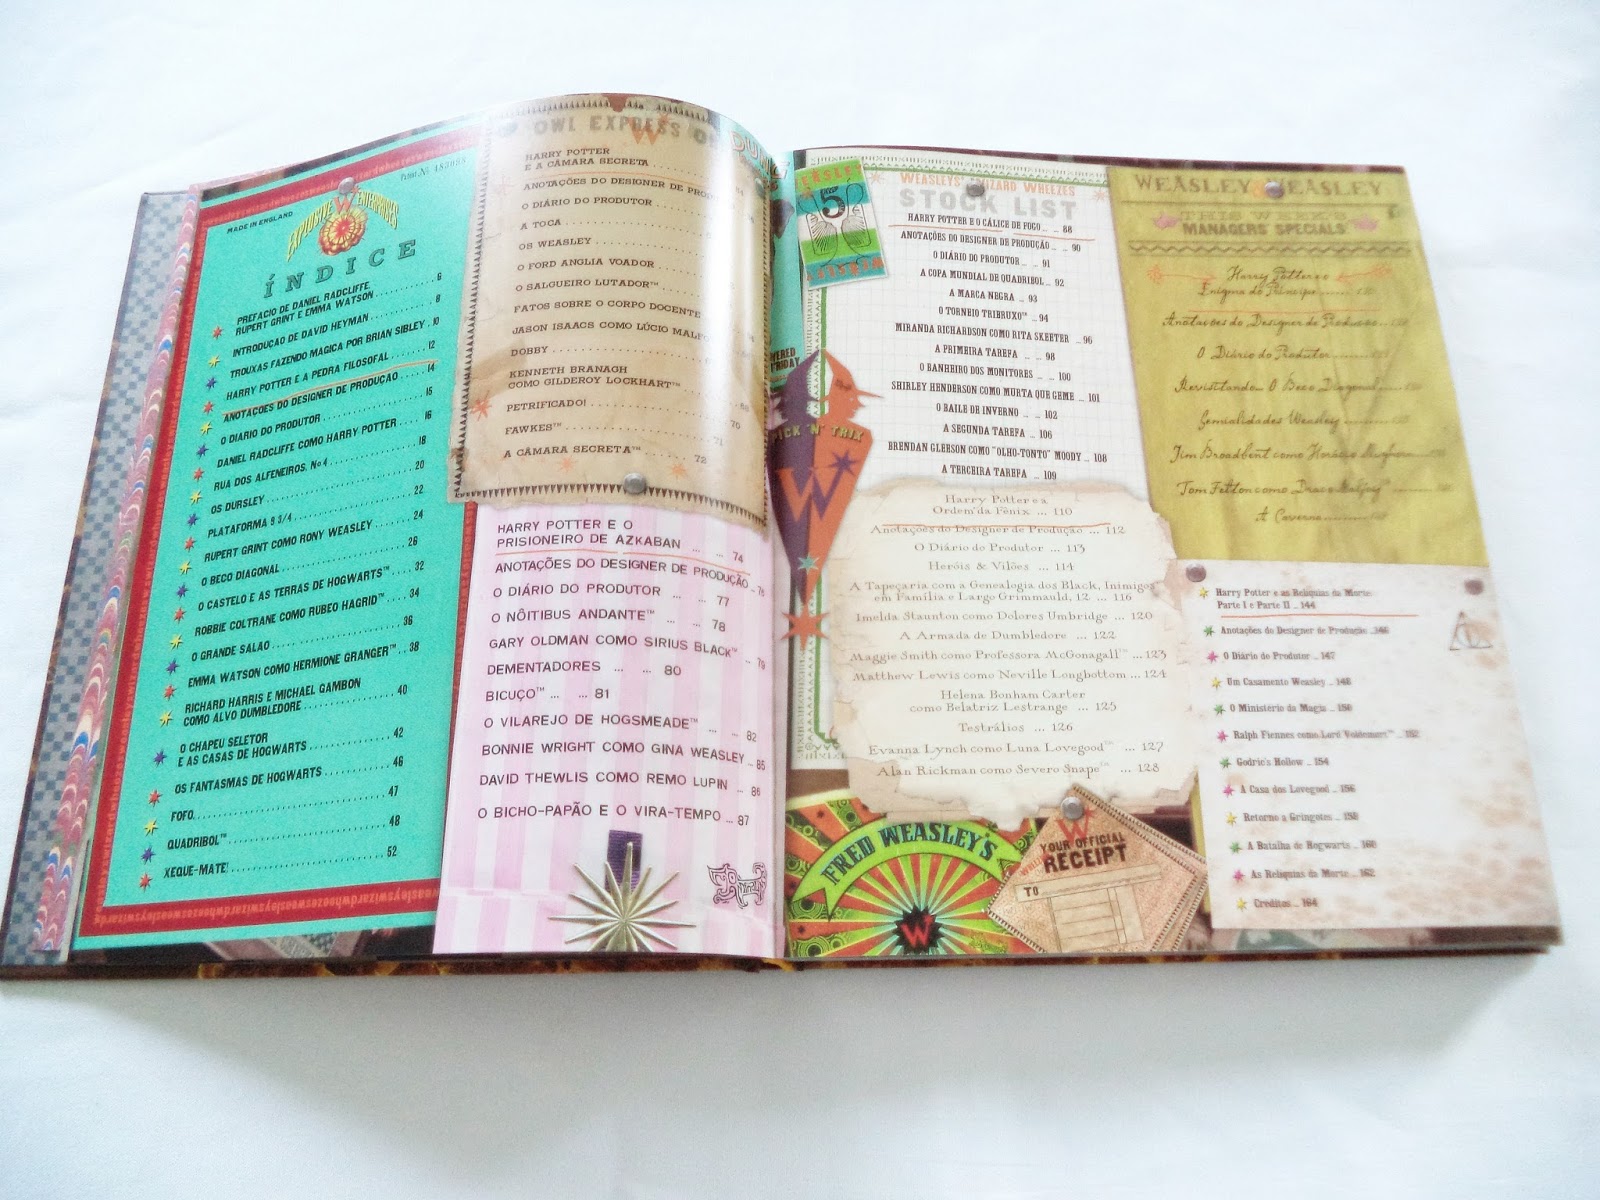 Patent No 483998
MADE IN ENGLAND
EXPLOSIVE ENTERPRISES
W
ÍNDICE
PREFÁCIO DE DANIEL RADCLIFFE
RUPERT GRINT E EMMA WATSON . . . . . . . . . . . 6
INTRODUÇÃO DE DAVID HEYMAN . . . . . . . . . . 8
TROUXAS FAZENDO MAGICA POR BRIAN SIBLEY . 10
HARRY POTTER E A PEDRA FILOSOFAL . . . . . . . 12
ANOTAÇÕES DO DESIGNER DE PRODUÇÃO . . . . . 14
O DIARIO DO PRODUTOR . . . . . . . . . . . . . . . 15
DANIEL RADCLIFFE COMO HARRY POTTER . . . . 16
RUA DOS ALFENEIROS, Nº 4 . . . . . . . . . . . . . 18
OS DURSLEY . . . . . . . . . . . . . . . . . . . . . 20
PLATAFORMA 9 3/4 . . . . . . . . . . . . . . . . . 22
RUPERT GRINT COMO RONY WEASLEY . . . . . . . 24
O BECO DIAGONAL . . . . . . . . . . . . . . . . . . 26
O CASTELO E AS TERRAS DE HOGWARTS™ . . . . 32
ROBBIE COLTRANE COMO RUBEO HAGRID™ . . . . 34
O GRANDE SALAO . . . . . . . . . . . . . . . . . . 36
EMMA WATSON COMO HERMIONE GRANGER™ . . 38
RICHARD HARRIS E MICHAEL GAMBON
COMO ALVO DUMBLEDORE . . . . . . . . . . . . . 40
O CHAPEU SELETOR
E AS CASAS DE HOGWARTS . . . . . . . . . . . . . 42
OS FANTASMAS DE HOGWARTS . . . . . . . . . . . 46
FOFO . . . . . . . . . . . . . . . . . . . . . . . . . 47
QUADRIBOL™ . . . . . . . . . . . . . . . . . . . . 48
XEQUE-MATE! . . . . . . . . . . . . . . . . . . . . 52
OWL EXPRESS
HARRY POTTER
E A CÂMARA SECRETA
ANOTAÇÕES DO DESIGNER DE
O DIÁRIO DO PRODUTOR
A TOCA
OS WEASLEY
O FORD ANGLIA VOADOR
O SALGUEIRO LUTADOR™
FATOS SOBRE O CORPO DOCENTE
JASON ISAACS COMO LÚCIO
DOBBY
KENNETH BRANAGH
COMO GILDEROY LOCKHART™
PETRIFICADO! . . . . . . . . . . . . . . . 70
FAWKES™ . . . . . . . . . . . . . . . . . 71
A CÂMARA SECRETA™ . . . . . . . . . . 72
HARRY POTTER E O
PRISIONEIRO DE AZKABAN ... ... 74
ANOTAÇÕES DO DESIGNER DE PRODUÇÃO .. 76
O DIÁRIO DO PRODUTOR ... ... 77
O NÔITIBUS ANDANTE™ ... ... 78
GARY OLDMAN COMO SIRIUS BLACK™ ... 79
DEMENTADORES ... ... 80
BICUÇO™ ... ... 81
O VILAREJO DE HOGSMEADE™ ... ... 82
BONNIE WRIGHT COMO GINA WEASLEY .. 85
DAVID THEWLIS COMO REMO LUPIN ... 86
O BICHO-PAPÃO E O VIRA-TEMPO ... 87
5
WEASLEYS' WIZARD WHEEZES
STOCK LIST
HARRY POTTER E O CÁLICE DE FOGO ... ... 88
ANOTAÇÕES DO DESIGNER DE PRODUÇÃO ... ... 90
O DIÁRIO DO PRODUTOR ... ... 91
A COPA MUNDIAL DE QUADRIBOL ... 92
A MARCA NEGRA ... 93
O TORNEIO TRIBRUXO™ ... 94
MIRANDA RICHARDSON COMO RITA SKEETER ... 96
A PRIMEIRA TAREFA ... 98
O BANHEIRO DOS MONITORES ... 100
SHIRLEY HENDERSON COMO MURTA QUE GEME ... 101
O BAILE DE INVERNO ... 102
A SEGUNDA TAREFA ... 106
BRENDAN GLEESON COMO "OLHO-TONTO" MOODY ... 108
A TERCEIRA TAREFA ... 109
PICK 'N' TRIX
W
Harry Potter e a
Ordem da Fênix ... 110
Anotações do Designer de Produção ... 112
O Diário do Produtor ... 113
Heróis & Vilões ... 114
A Tapeçaria com a Genealogia dos Black, Inimigos
em Família e Largo Grimmauld, 12 ... 116
Imelda Staunton como Dolores Umbridge ... 120
A Armada de Dumbledore ... 122
Maggie Smith como Professora McGonagall™ ... 123
Matthew Lewis como Neville Longbottom ... 124
Helena Bonham Carter
como Belatriz Lestrange ... 125
Testrálios ... 126
Evanna Lynch como Luna Lovegood™ ... 127
Alan Rickman como Severo Snape™ ... 128
FRED WEASLEY'S
W
W
YOUR OFFICIAL
RECEIPT
TO
WEASLEY & WEASLEY
THIS WEEK'S
MANAGERS' SPECIALS
Harry Potter e o
Enigma do Príncipe
Anotações do Designer de Produção
O Diário do Produtor
Revisitando... O Beco Diagonal
Gemialidades Weasley
Jim Broadbent como Horácio Slughorn
Tom Felton como Draco Malfoy™
A Caverna
Harry Potter e as Relíquias da Morte:
Parte I e Parte II ... 144
Anotações do Designer de Produção ... 146
O Diário do Produtor ... 147
Um Casamento Weasley ... 148
O Ministério da Magia ... 150
Ralph Fiennes como Lord Voldemort™ ... 152
Godric's Hollow ... 154
A Casa dos Lovegood ... 156
Retorno a Gringotes ... 159
A Batalha de Hogwarts ... 160
As Relíquias da Morte ... 162
Créditos ... 164